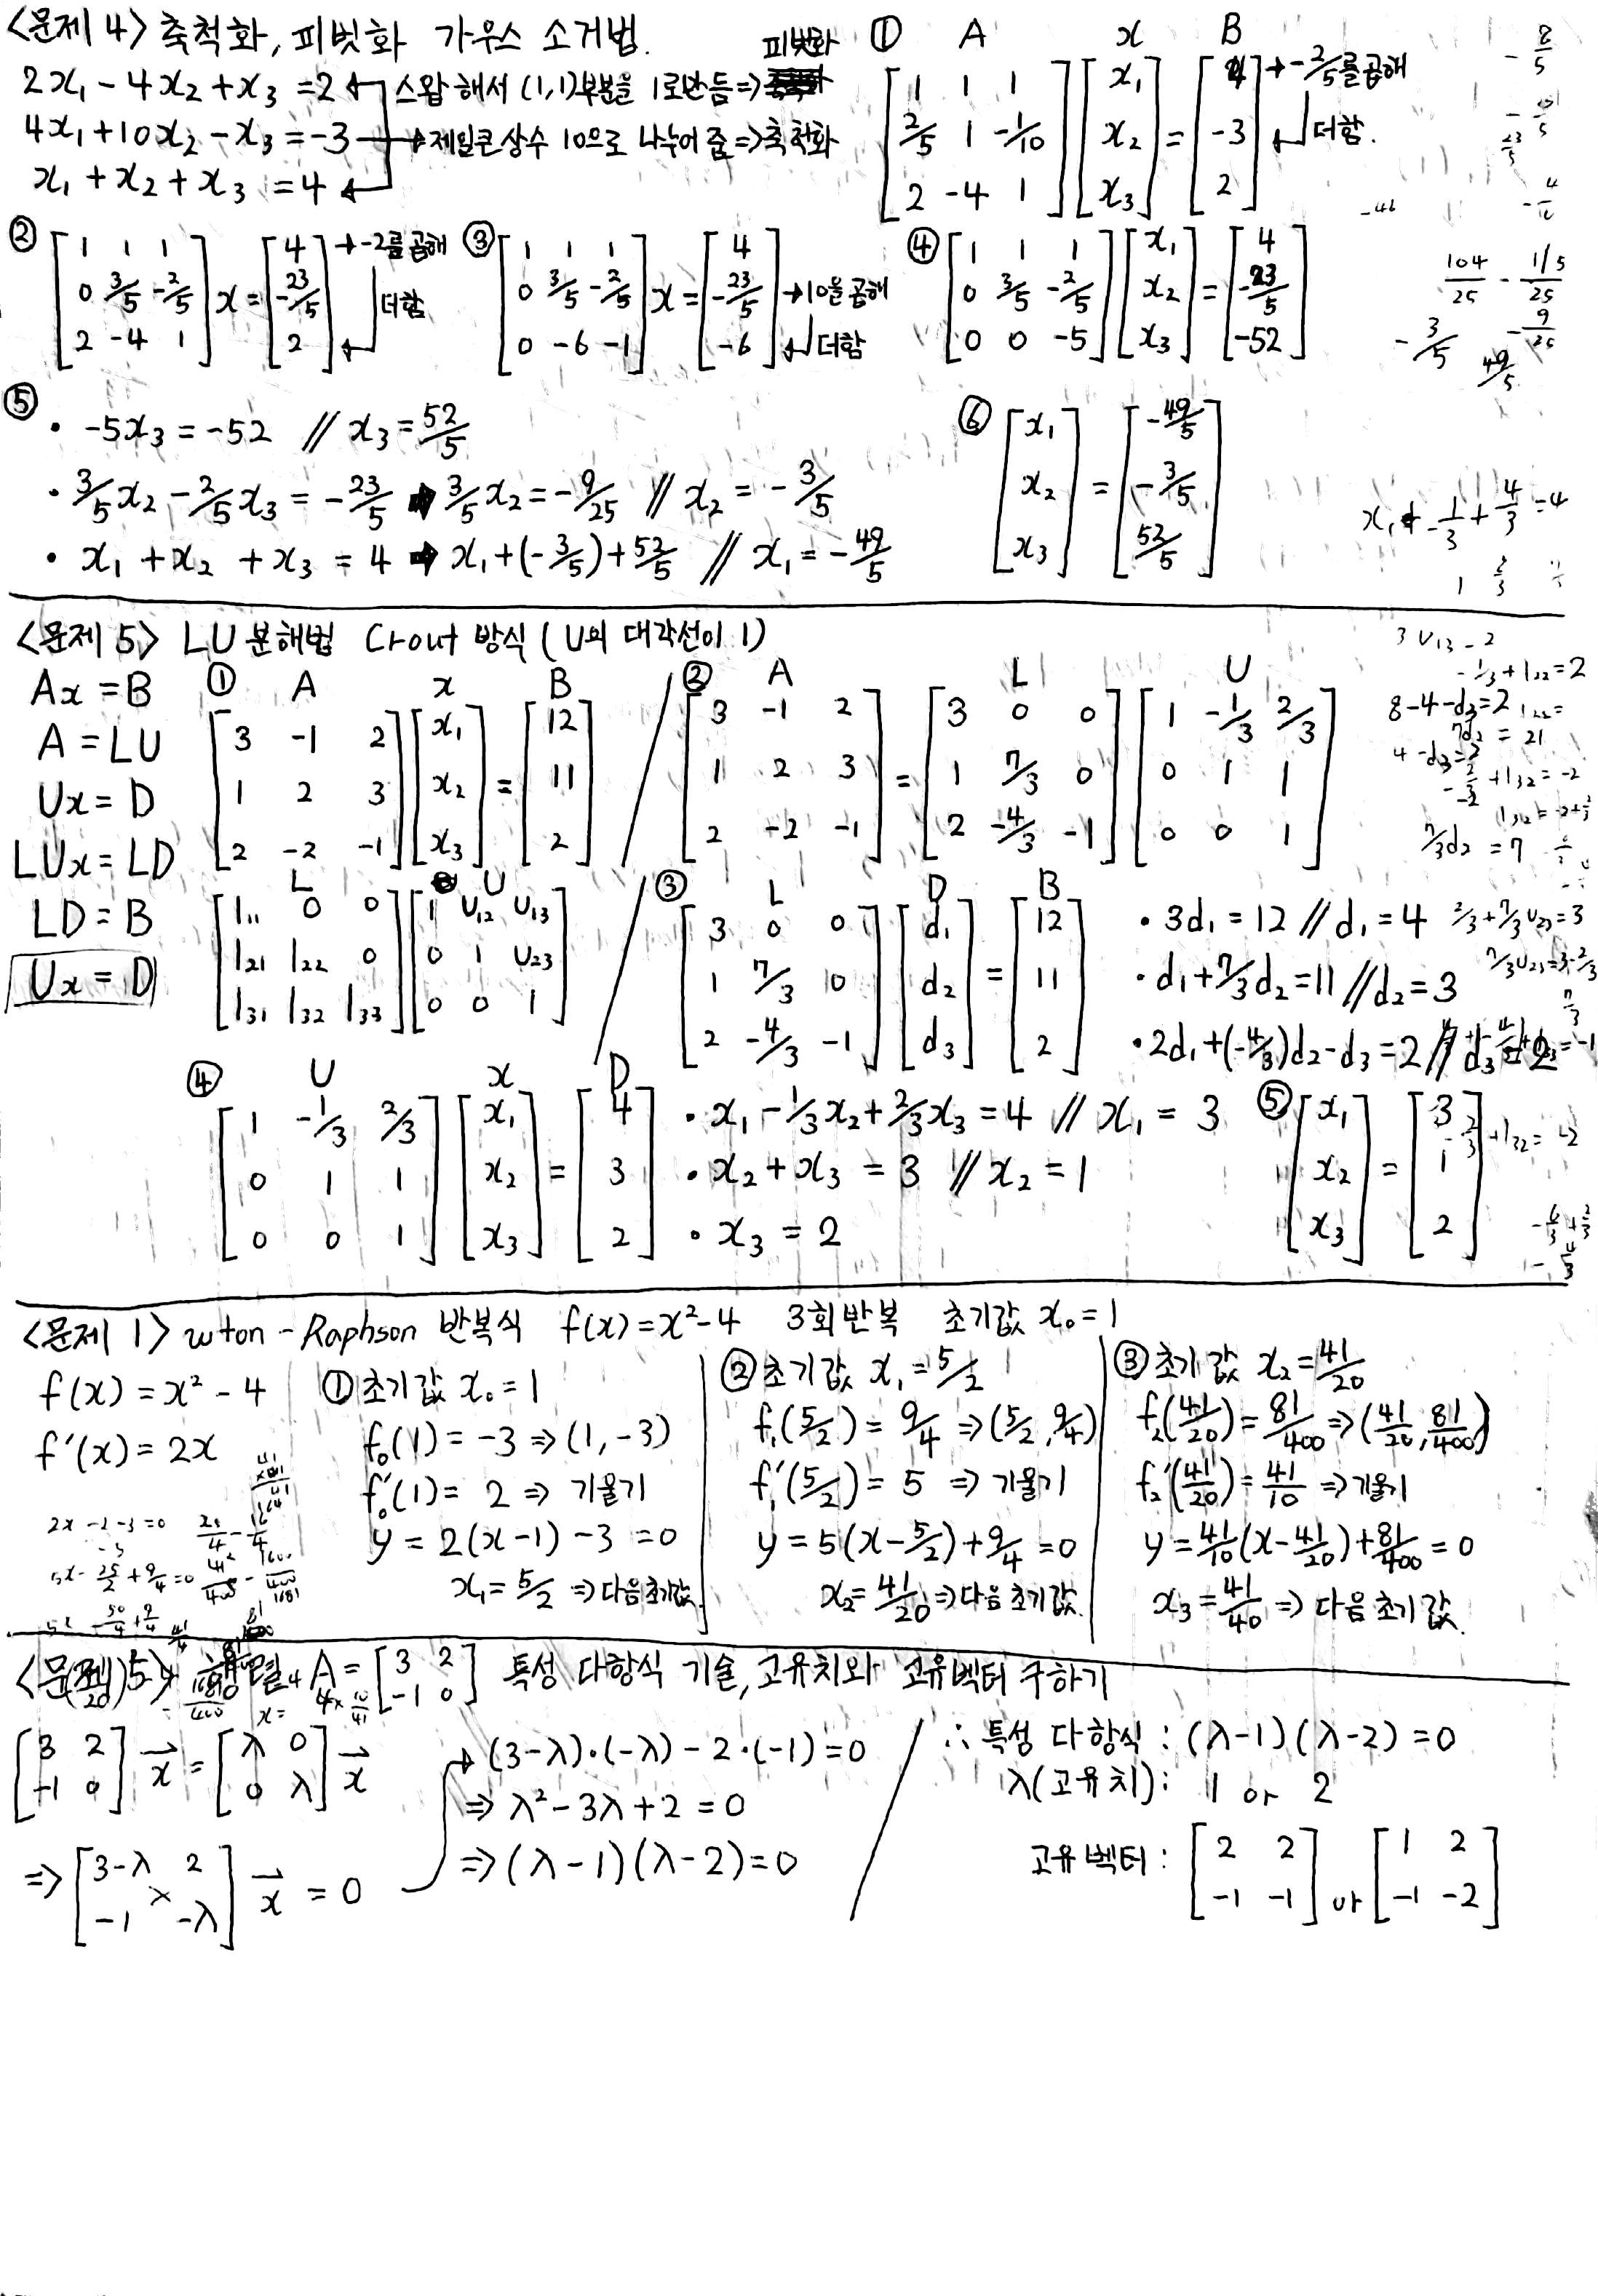 <문제 4> 축척화, 피벗화 가우스 소거법.
2x₁ - 4x₂ + x₃ = 2
4x₁ + 10x₂ - x₃ = -3
x₁ + x₂ + x₃ = 4
스왑 해서 (1,1)부분을 1로 만듬 ⇒ 피벗화
제일 큰 상수 10으로 나누어 줌 ⇒ 축척화
① A x B
[1 1 1; 2/5 1 -1/10; 2 -4 1] [x₁; x₂; x₃] = [4; -3; 2]
-2/5를 곱해
더함.
② [1 1 1; 0 3/5 -2/5; 2 -4 1] x = [4; -23/5; 2]
-2를 곱해
더함
③ [1 1 1; 0 3/5 -2/5; 0 -6 -1] x = [4; -23/5; -6]
10을 곱해
더함
④ [1 1 1; 0 3/5 -2/5; 0 0 -5] [x₁; x₂; x₃] = [4; -23/5; -52]
⑤
· -5x₃ = -52 // x₃ = 52/5
· 3/5x₂ - 2/5x₃ = -23/5 ➡ 3/5x₂ = -9/25 // x₂ = -3/5
· x₁ + x₂ + x₃ = 4 ➡ x₁ + (-3/5) + 52/5 // x₁ = -49/5
⑥ [x₁; x₂; x₃] = [-49/5; -3/5; 52/5]
<문제 5> LU 분해법 Crout 방식 (U의 대각선이 1)
Ax = B
A = LU
Ux = D
LUx = LD
LD = B
Ux = D
① A x B
[3 -1 2; 1 2 3; 2 -2 -1] [x₁; x₂; x₃] = [12; 11; 2]
L U
[l₁₁ 0 0; l₂₁ l₂₂ 0; l₃₁ l₃₂ l₃₃] [1 U₁₂ U₁₃; 0 1 U₂₃; 0 0 1]
② A L U
[3 -1 2; 1 2 3; 2 -2 -1] = [3 0 0; 1 7/3 0; 2 -4/3 -1] [1 -1/3 2/3; 0 1 1; 0 0 1]
③ L D B
[3 0 0; 1 7/3 0; 2 -4/3 -1] [d₁; d₂; d₃] = [12; 11; 2]
· 3d₁ = 12 // d₁ = 4
· d₁ + 7/3d₂ = 11 // d₂ = 3
· 2d₁ + (-4/3)d₂ - d₃ = 2 // d₃ = 2
④ U x D
[1 -1/3 2/3; 0 1 1; 0 0 1] [x₁; x₂; x₃] = [4; 3; 2]
· x₁ - 1/3x₂ + 2/3x₃ = 4 // x₁ = 3
· x₂ + x₃ = 3 // x₂ = 1
· x₃ = 2
⑤ [x₁; x₂; x₃] = [3; 1; 2]
<문제 1> wton - Raphson 반복식 f(x) = x² - 4 3회 반복 초기값 x₀ = 1
f(x) = x² - 4
f'(x) = 2x
① 초기값 x₀ = 1
f₀(1) = -3 ⇒ (1, -3)
f₀'(1) = 2 ⇒ 기울기
y = 2(x-1) - 3 = 0
x₁ = 5/2 ⇒ 다음 초기값.
② 초기값 x₁ = 5/2
f₁(5/2) = 9/4 ⇒ (5/2, 9/4)
f₁'(5/2) = 5 ⇒ 기울기
y = 5(x - 5/2) + 9/4 = 0
x₂ = 41/20 ⇒ 다음 초기값.
③ 초기값 x₂ = 41/20
f₂(41/20) = 81/400 ⇒ (41/20, 81/400)
f₂'(41/20) = 41/10 ⇒ 기울기
y = 41/10(x - 41/20) + 81/400 = 0
x₃ = 41/40 ⇒ 다음 초기값.
<문제 5> 행렬 A = [3 2; -1 0] 특성 다항식 기술, 고유치와 고유벡터 구하기
[3 2; -1 0] x = [λ 0; 0 λ] x
⇒ [3-λ 2; -1 -λ] x = 0
(3-λ)·(-λ) - 2·(-1) = 0
⇒ λ² - 3λ + 2 = 0
⇒ (λ-1)(λ-2) = 0
∴ 특성 다항식 : (λ-1)(λ-2) = 0
λ(고유치) : 1 or 2
고유벡터 : [2 2; -1 -1] or [1 2; -1 -2]